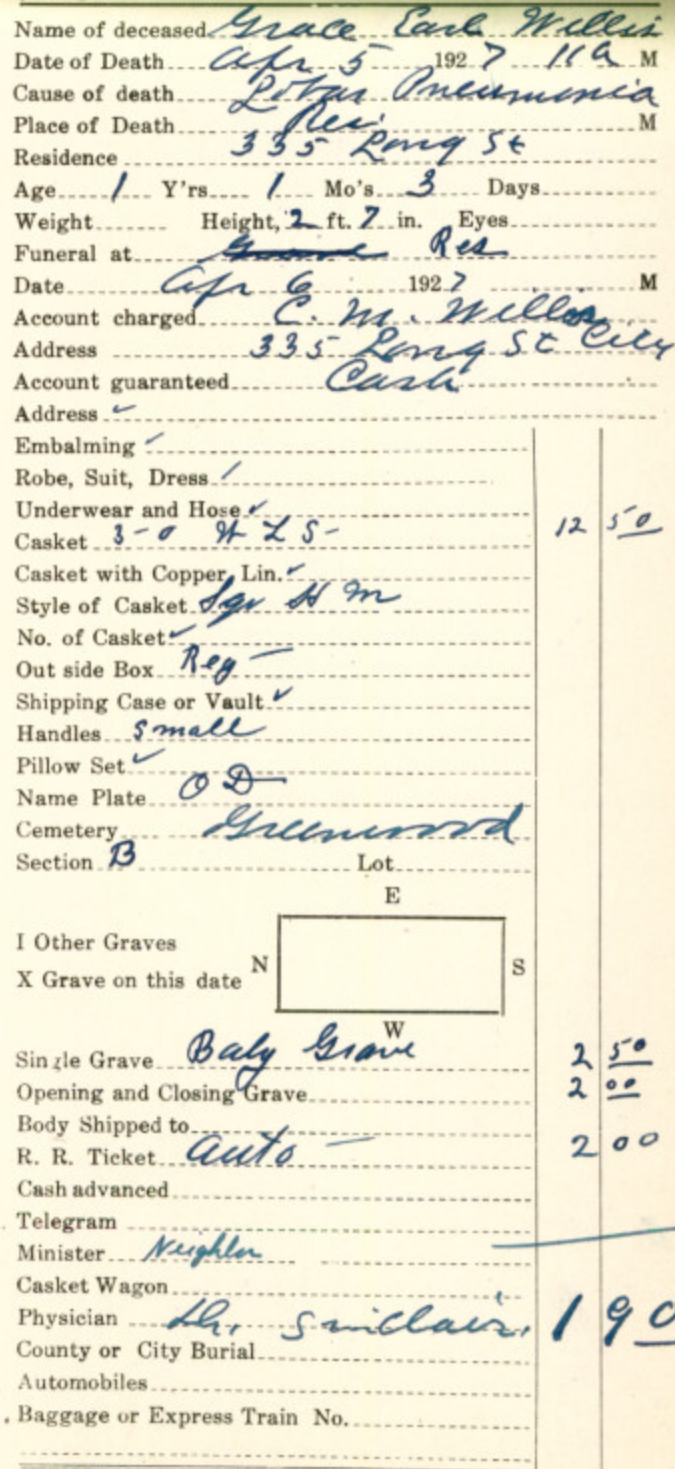 Name of deceased Grace Earl Willis
Date of Death Apr 5 1927 11 a M
Cause of death Lobar Pneumonia
Place of Death Res. M
Residence 335 Long St
Age 1 Y'rs 1 Mo's 3 Days
Weight Height, 2 ft. 7 in. Eyes
Funeral at Res
Date Apr 6 1927 M
Account charged C. M. Willis
Address 335 Long St City
Account guaranteed Cash
Address ✓
Embalming ✓
Robe, Suit, Dress ✓
Underwear and Hose ✓
Casket 3-0 W L S- 12 50
Casket with Copper Lin. ✓
Style of Casket Sqr H M
No. of Casket ✓
Out side Box Reg —
Shipping Case or Vault ✓
Handles small
Pillow Set ✓
Name Plate O D
Cemetery Greenwood
Section B Lot
E
I Other Graves
N S
X Grave on this date
W
Single Grave Baby Grave 2 50
Opening and Closing Grave 2 00
Body Shipped to
R. R. Ticket Auto — 2 00
Cash advanced
Telegram
Minister Neighbor
Casket Wagon
Physician Dr. Sinclair. 190
County or City Burial
Automobiles
Baggage or Express Train No.